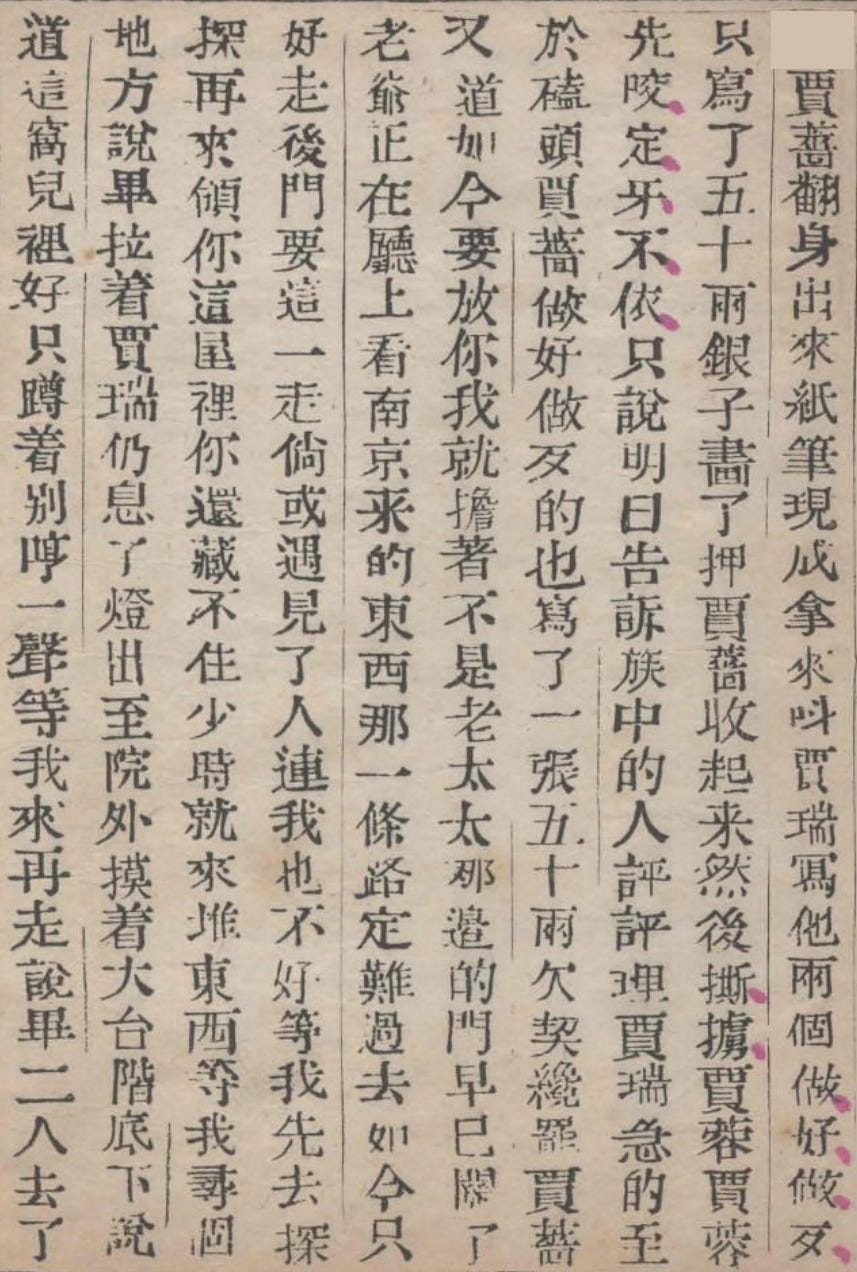 賈薔翻身出來紙筆現成拿來呌賈瑞寫他兩個做好做歹
只寫了五十兩銀子畵了押賈薔收起来然後撕擄賈蓉賈蓉
先咬定牙不依只說明日告訴族中的人評評理賈瑞急的至
於磕頭賈薔做好做歹的也寫了一張五十兩欠契纔罷賈薔
又道如今要放你我就擔著不是老太太那邉的門早已關了
老爺正在廳上看南京来的東西那一條路定難過去如今只
好走後門要這一走倘或遇見了人連我也不好等我先去探
探再來領你這屋裡你還藏不住少時就來堆東西等我尋個
地方說畢拉着賈瑞仍息了燈出至院外摸着大台階底下說
道這窩兒裡好只蹲着别哼一聲等我來再走說畢二人去了